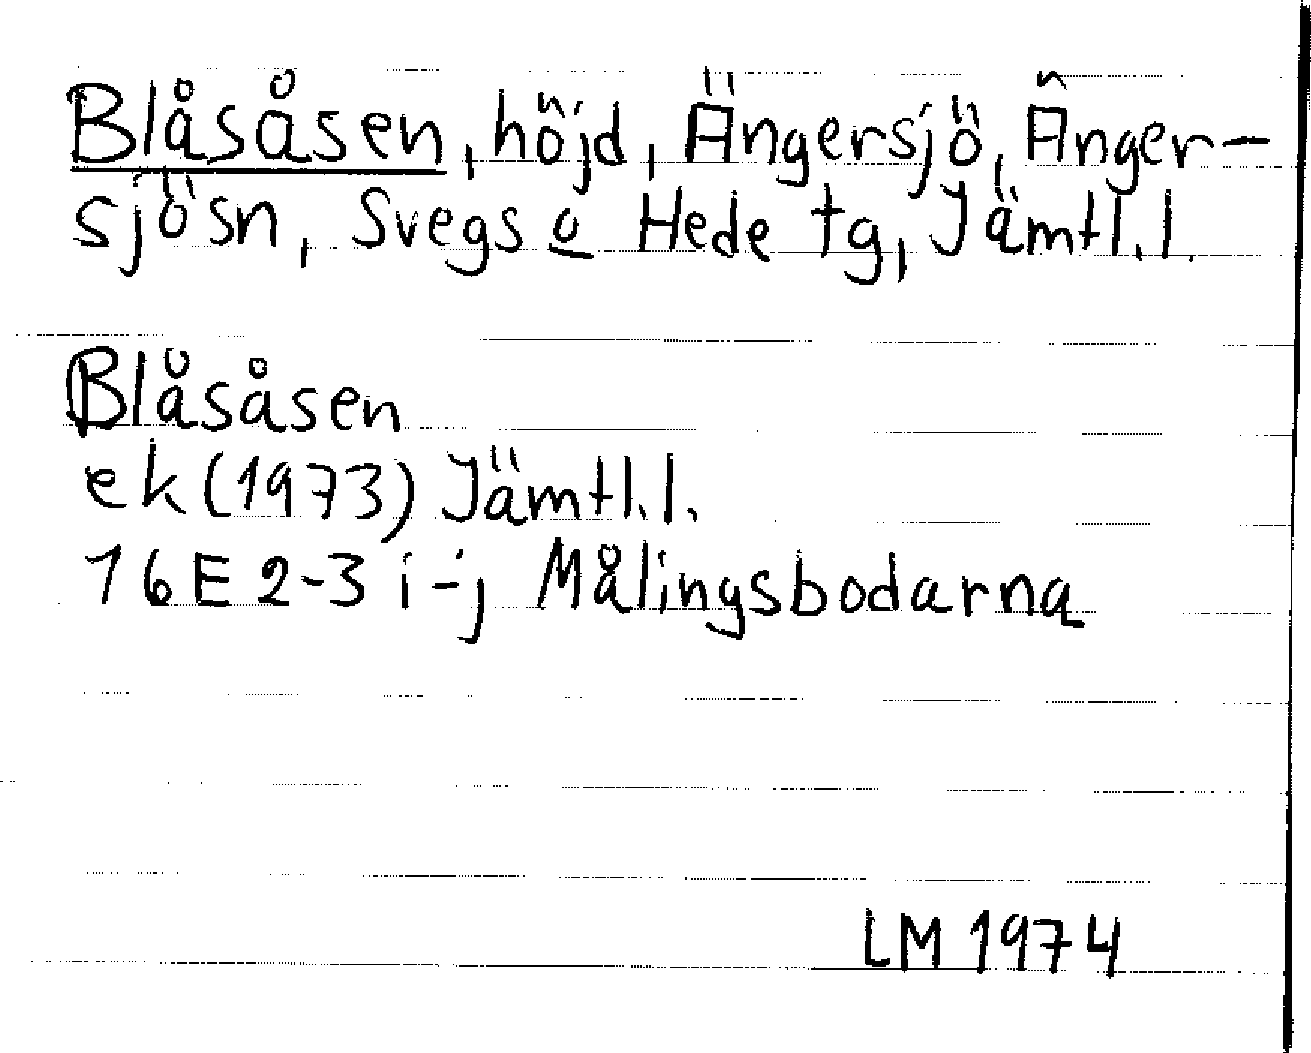 Blåsåsen, höjd, Ängersjö, Änger-
sjösn, Svegs o Hede tg, Jämtl.l.
Blåsåsen
ek (1973) Jämtl.l.
16E 2-3 i-j Målingsbodarna
LM 1974